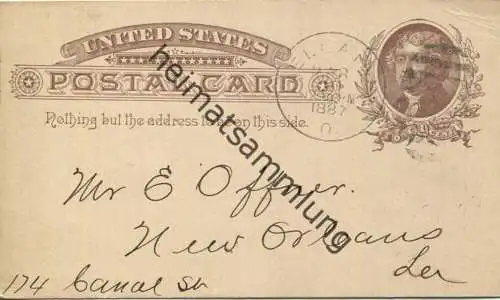 UNITED STATES
POSTAL CARD
Nothing but the address to be on this side.
1887
Mr E Offner.
New Orleans
La
174 Canal St
heimatsammlung